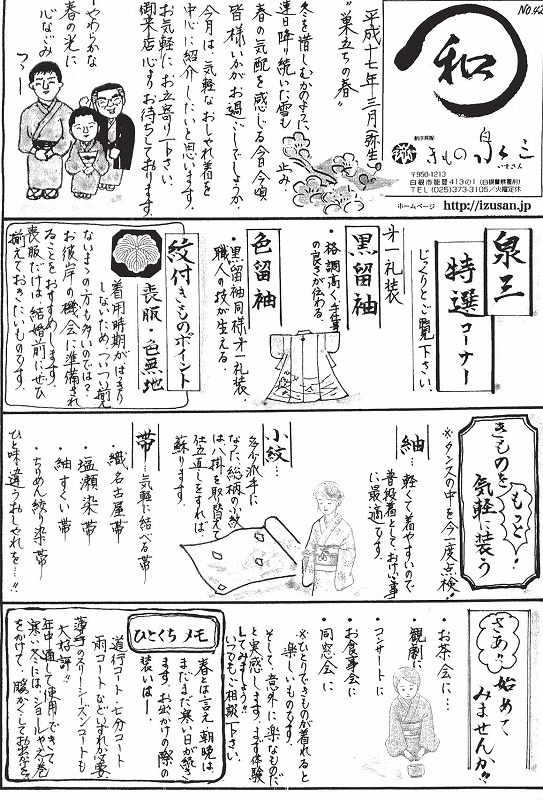 No.42
和
創作呉服
きもの 泉三
いずさん
〒950-1213
白根市能登413の1（白根警察署前）
TEL (025)373-3105／火曜定休
ホームページ http://izusan.jp
平成十七年三月(弥生)
"巣立ちの春"
冬を惜しむかのように
連日降り続いた雪も止み
春の気配を感じる今日今頃
皆様いかがお過ごしでしょうか。
今月は、気軽なおしゃれ着を
中心に紹介したいと思います。
お気軽にお立寄り下さい。
御来店心よりお待ちしております。
やわらかな
春の光に
心なごみつつ
泉三
特選コーナー
じっくりとご覧下さい。
才一礼装
黒留袖
・格調高く手描
の良さが伝わる。
色留袖
・黒留袖同様才一礼装、
職人の技が生える。
紋付きものポイント
喪服・色無地
着用時期がはっきり
しないため、ついつい揃え
ないままの方も多いのでは？
お彼岸の機会に準備され
ることをおすすめします。
喪服だけは結婚前にぜひ
揃えておきたいものです。
きものを
もっと！
気軽に装う
※タンスの中を今一度点検。
紬…
軽くて着やすいので
普段着としておけいこ事
に最適です。
小紋…
多少派手に
なった総柄の小紋
は八掛を取り替えて
仕立直しをすれば、
蘇ります。
帯…気軽に結べる帯
・織名古屋帯
・紬すくい帯
・塩瀬染帯
・ちりめん絞り染帯
ひと味違うおしゃれを…!!
さあ!!始めて
みませんか!!
・お茶会に…
・観劇に
・コンサートに
・お食事会に
・同窓会に
※ひとりできものが着れると
楽しいものです。
そして、意外に楽なものだ
と実感します。まず体験
してみましょう!!
いつでもご相談下さい。
ひとくちメモ
春とは言え朝晩は、
まだまだ寒い日が続き
ます。お出かけの際の
装いは―。
道行コート・七分コート
雨コートなどいずれか必要
薄手のスリーシーズンコートも
大好評!!
年中通して使用できて
寒い冬には、ショールや衿巻
をかけて、暖かくしてお出かけを。